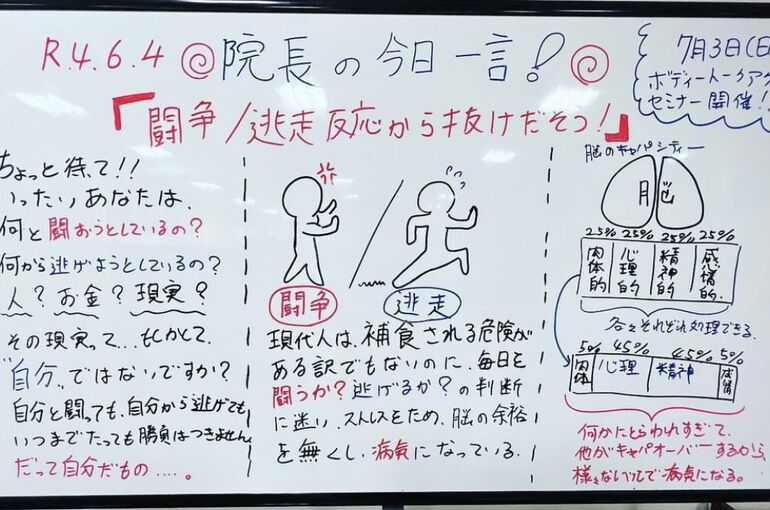 R.4.6.4 院長の今日一言!
7月3日(日
ボディートークアク
セミナー開催!
「闘争/逃走反応から抜けだそう!」
ちょっと待て!!
いったい、あなたは、
何と闘おうとしているの?
何から逃げようとしているの?
人? お金? 現実?
その現実って...もしかして、
"自分"ではないですか?
自分と闘っても、自分から逃げても
いつまでたっても勝負はつきません
だって自分だもの.....。
闘争 逃走
現代人は、補食される危険が
ある訳でもないのに、毎日を
闘うか?逃げるか?の判断
に迷い、ストレスをため、脳の余裕
を無くし、病気になっている。
脳のキャパシティー
脳
25% 25% 25% 25%
肉体的 心理的 精神的 感情的
各々それぞれ処理できる。
5% 45% 45% 5%
肉体 心理 精神 感情
何かにとらわれすぎて、
他がキャパオーバーするから
様々ないみで病気になる。